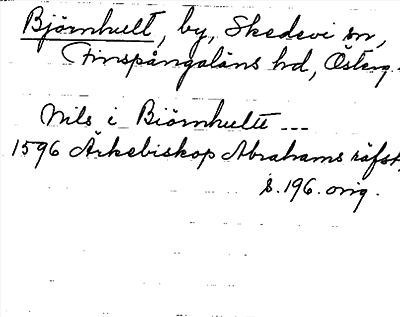 Björnhult, by, Skedevi sn,
Finspångaläns hd, Österg.
Nils i Biörnhultt ---
1596 Ärkebiskop Abrahams räfst,
s. 196. orig.